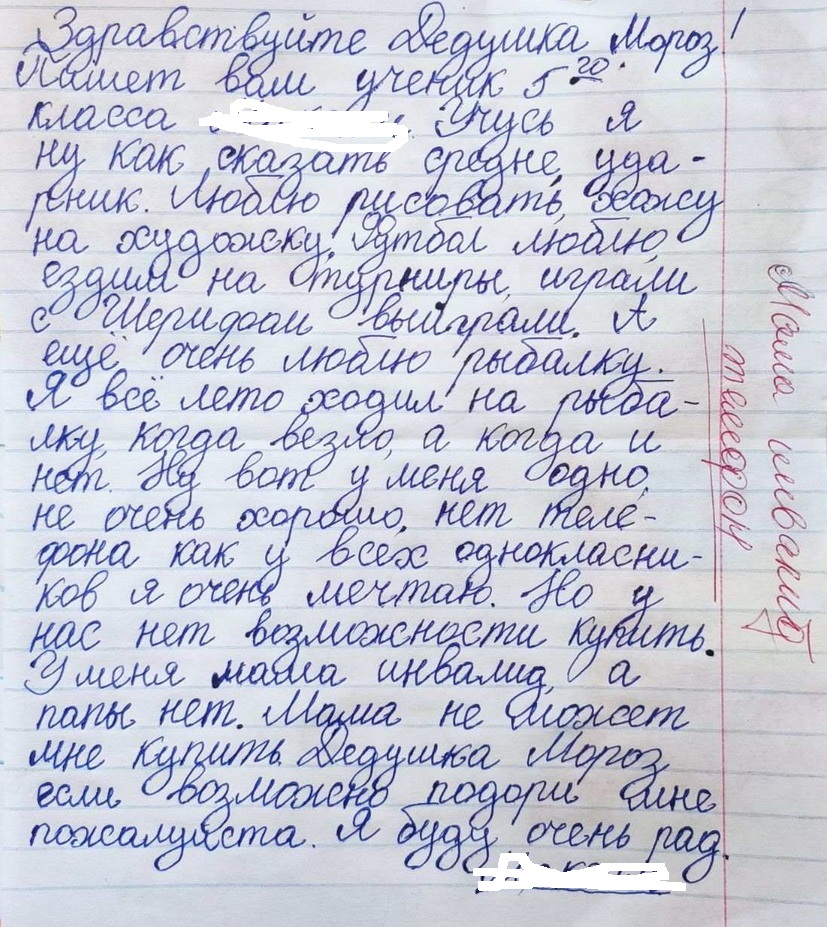 Здравствуйте Дедушка Мороз!
Пишет вам ученик 5го.
класса Учусь я
ну как сказать средне, уда-
рник. Люблю рисовать, хожу
на художку. Футбол люблю,
ездили на турниры, играли
с Шеридоам выиграли. А
ещё очень люблю рыбалку.
Я всё лето ходил на рыба-
лку, когда везло, а когда и
нет. Ну вот у меня одно,
не очень хорошо, нет теле-
фона как у всех однокласни-
ков я очень мечтаю. Но у
нас нет возможности купить.
У меня мама инвалид, а
папы нет. Мама не может
мне купить. Дедушка Мороз
если возможно подари мне
пожалуйста. Я буду очень рад.
Мама инвалид
телефон